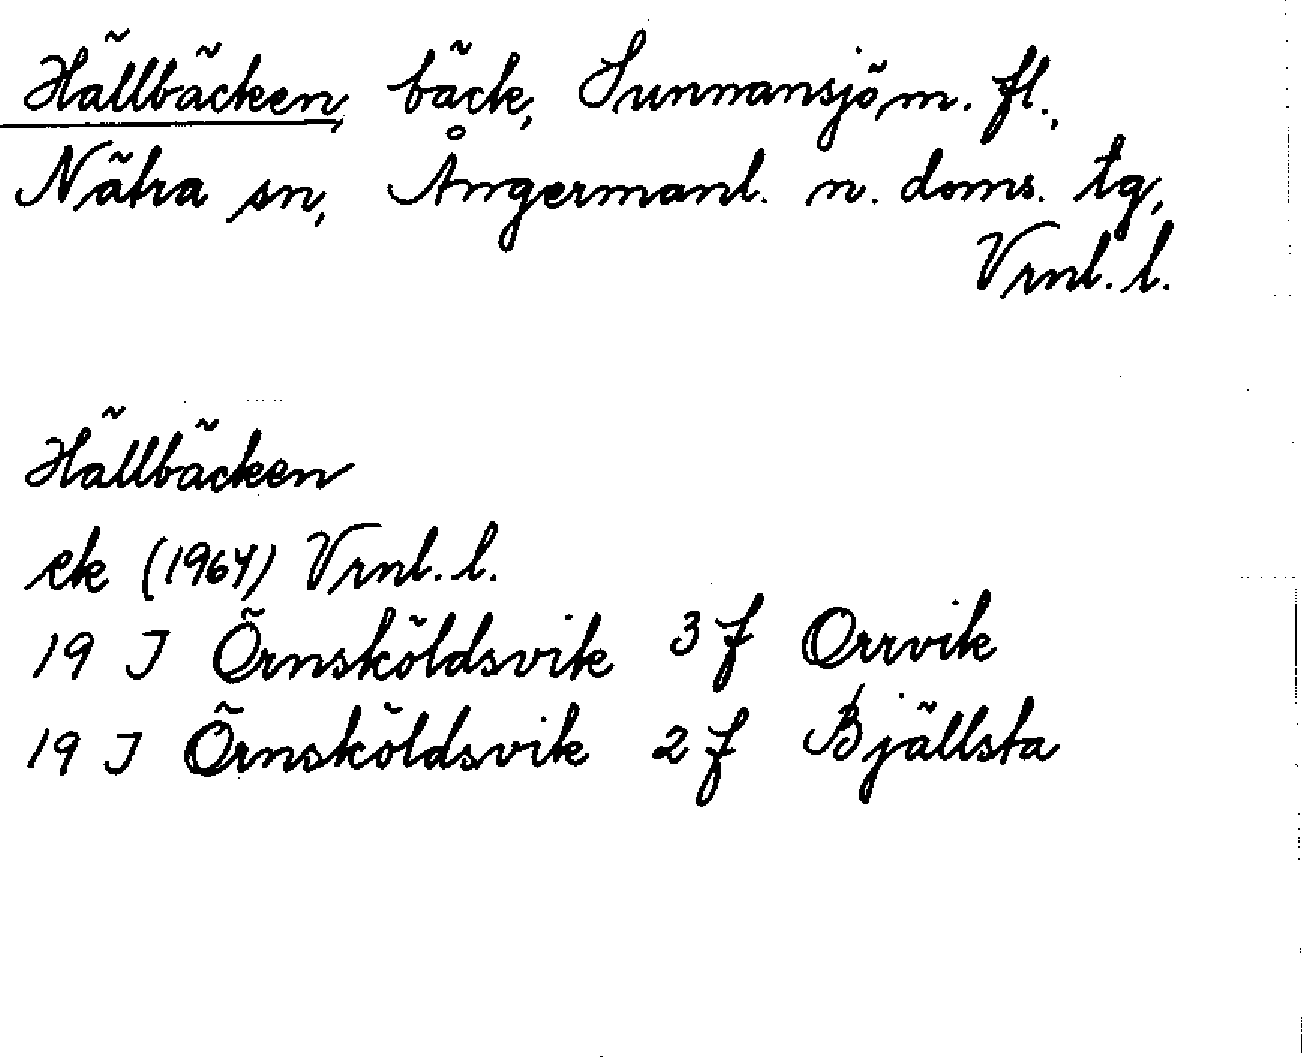 Hällbäcken, bäck, Sunnansjö m. fl.,
Nätra sn, Ångermanl. n. doms. tg,
Vrnl. l.
Hällbäcken
ek (1964) Vrnl. l.
19 J Örnsköldsvik 3 f Orrvik
19 J Örnsköldsvik 2 f Bjällsta